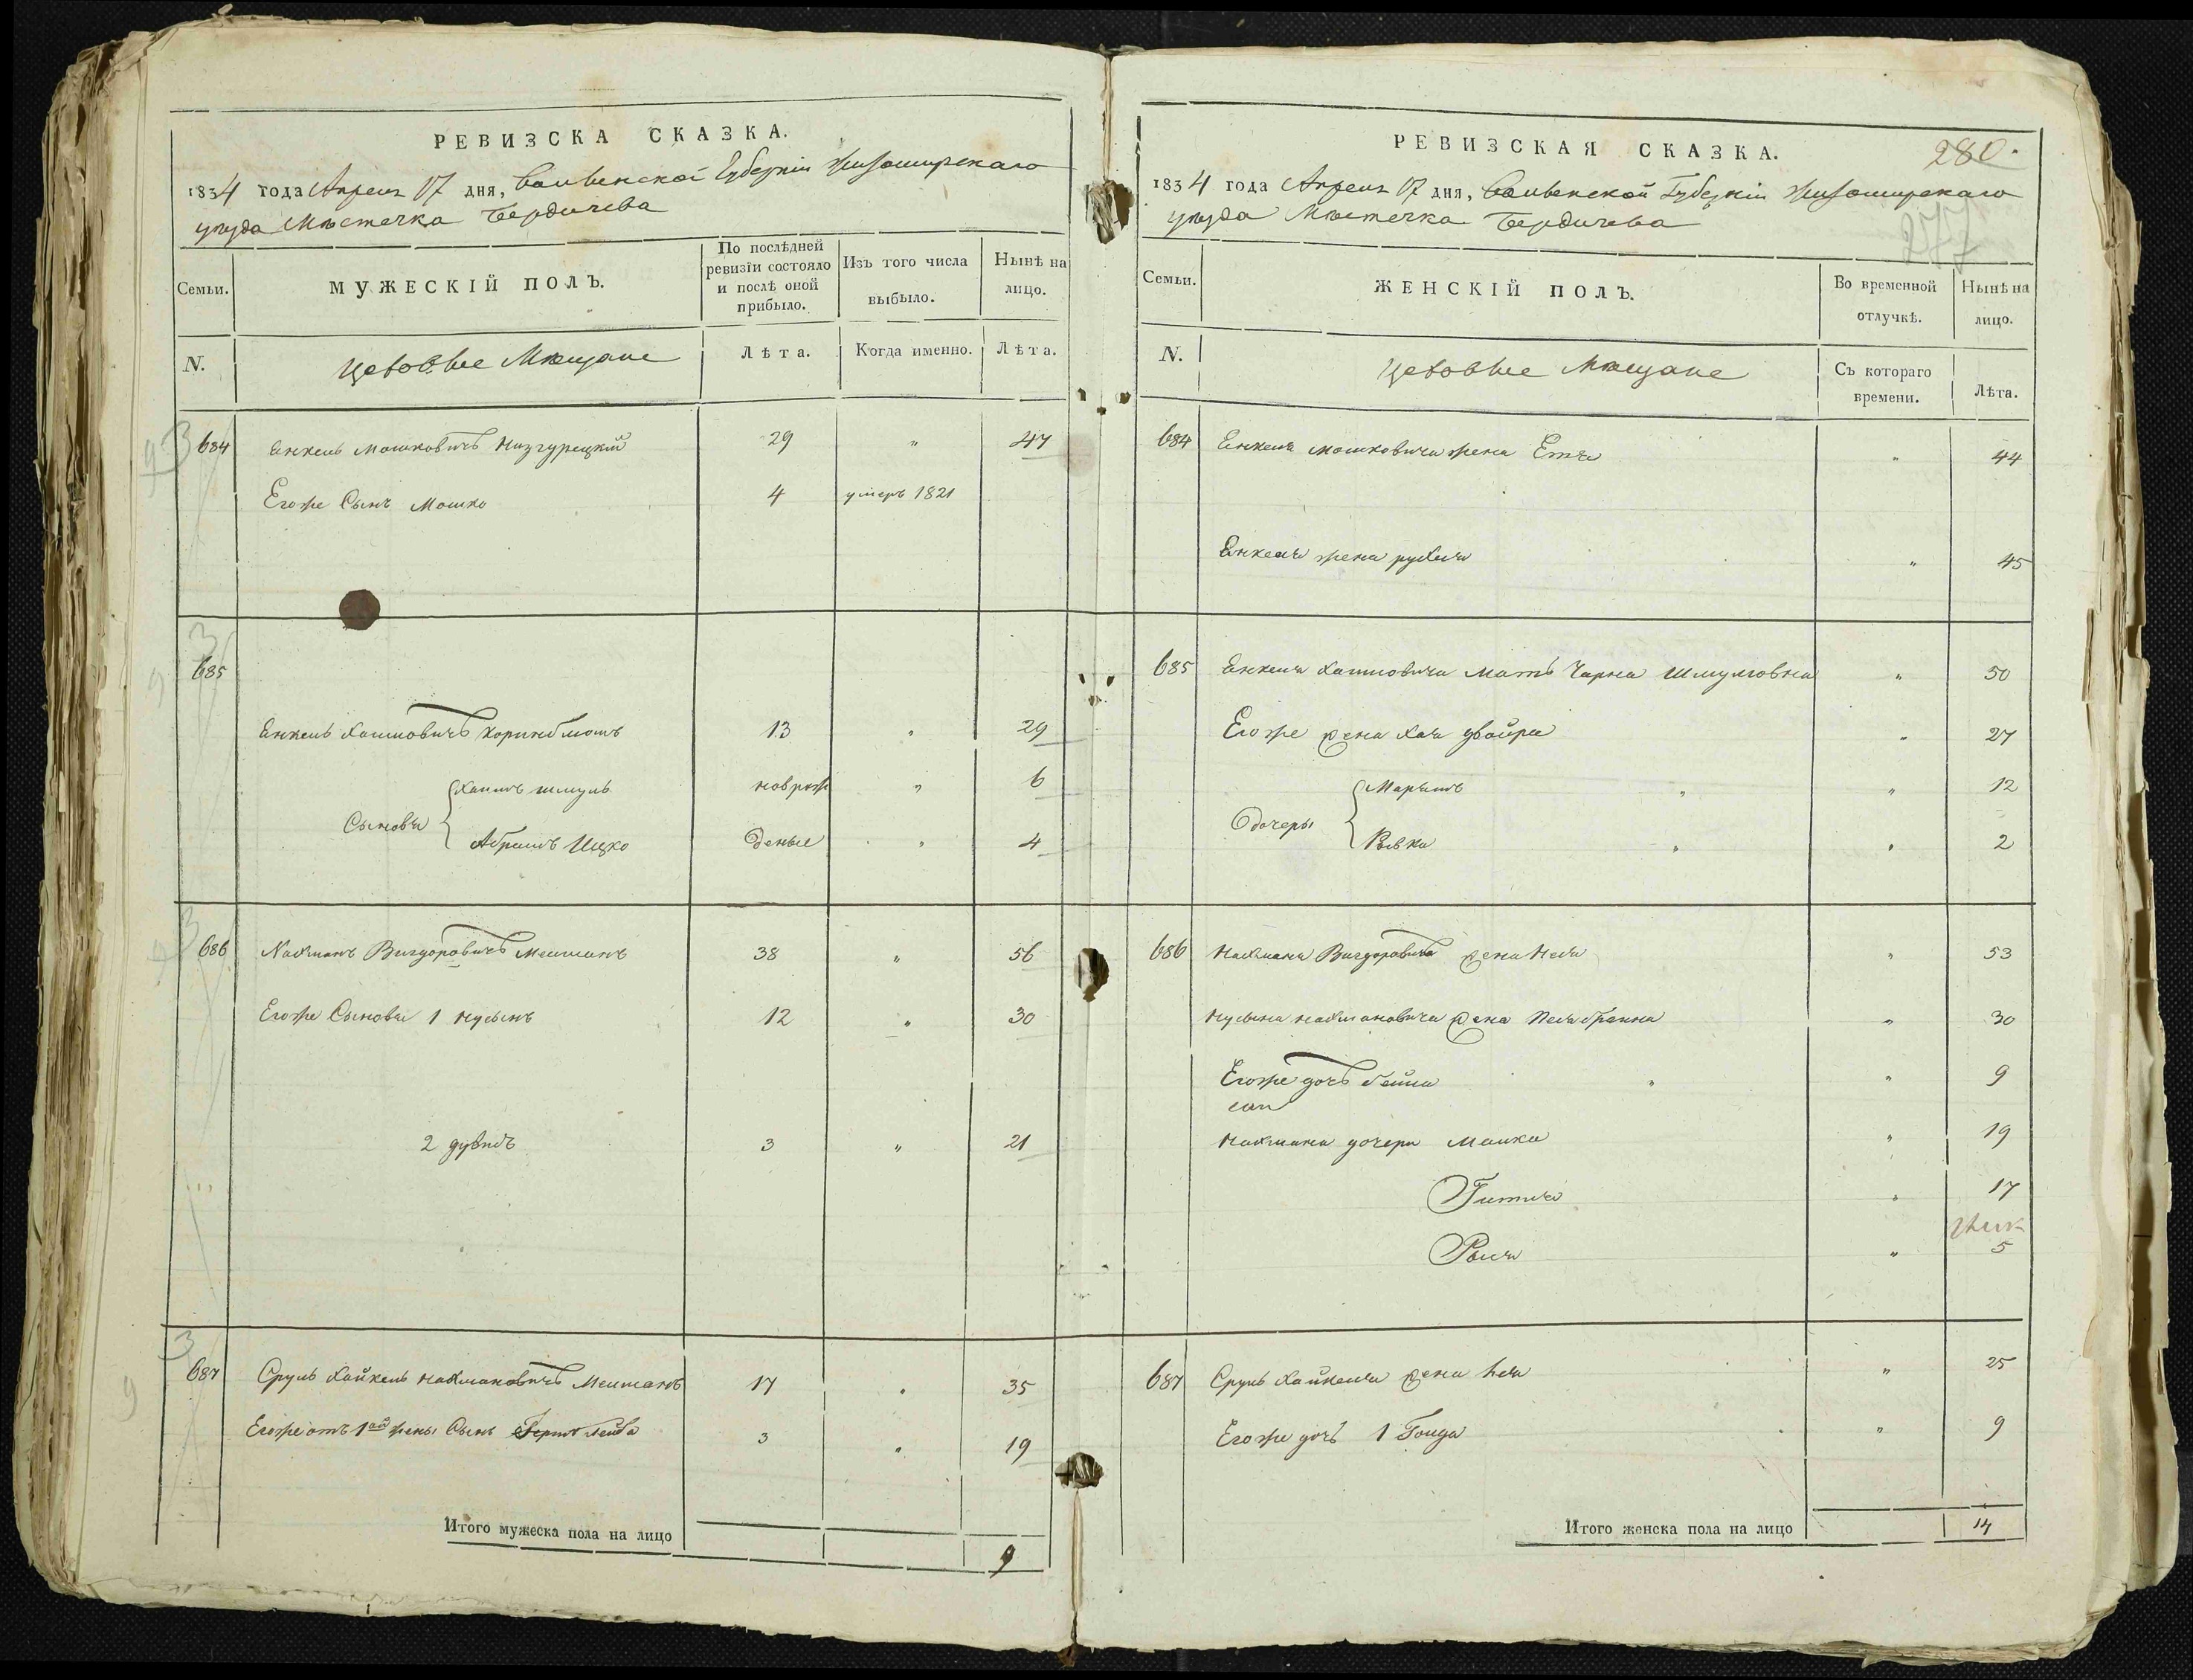 РЕВИЗСКА СКАЗКА.
1834 года Апреля 17 дня, Волынской Губернiи Житомирскаго
уѣзда Мѣстечка Бердичева
Семьи.
МУЖЕСКIЙ ПОЛЪ.
По послѣдней ревизiи состояло и послѣ оной прибыло.
Изъ того числа выбыло.
Нынѣ на лицо.
N.
Цеховые Мѣщане
Лѣта.
Когда именно.
Лѣта.
684 Янкель Мошковичъ Низгурецкiй 29 " 47
Егоже Сынъ Мошко 4 умеръ 1821
685
Янкель Хаимовичъ 13 " 29
Сыновья { Хаимъ Шмуль новрож " 6
Абрамъ Ицко деные " 4
686 Нахманъ Вигдоровичъ Мельманъ 38 " 56
Егоже Сыновья 1 Нусынъ 12 " 30
2 Дувидъ 3 " 21
687 Сруль Хайкель Нахмановичъ Мельманъ 17 " 35
Егоже отъ 1ой жены Сынъ Лейба 3 " 19
Итого мужеска пола на лицо 9
РЕВИЗСКАЯ СКАЗКА.
280.
277
1834 года Апреля 17 дня, Волынской Губернiи Житомирскаго
уѣзда Мѣстечка Бердичева
Семьи.
ЖЕНСКIЙ ПОЛЪ.
Во временной отлучкѣ.
Нынѣ на лицо.
N.
Цеховые Мѣщане
Съ котораго времени.
Лѣта.
684 Янкеля Мошковича жена Етя " 44
Янкеля жена Рухля " 45
685 Янкеля Хаимовича мать Чарна Шмулювна " 50
Егоже жена Хая Двойра " 27
Дочеры { Марьямъ " " 12
Ривка " " 2
686 Нахмана Вигдоровича жена Неся " 53
Нусына Нахмановича жена Песя Брайна " 30
Егоже дочь Бейла " " 9
Нахмана дочери Малка " 19
Гитля " 17
Рыся " 5
687 Сруль Хайкеля жена Лея " 25
Егоже дочь 1 Голда " 9
Итого женска пола на лицо 14